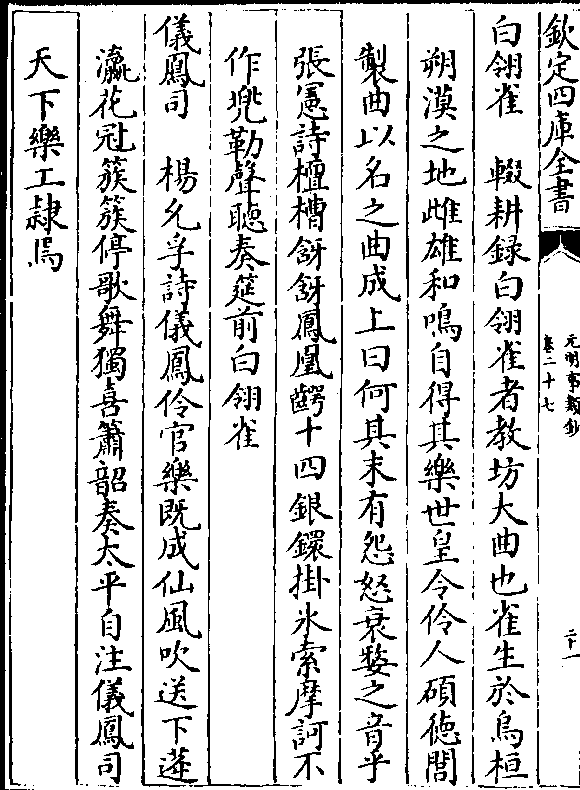 欽定四庫全書
元明事類鈔
卷二十七
二十一
白翎雀　輟耕録白翎雀者教坊大曲也雀生於烏桓
朔漠之地雌雄和鳴自得其樂世皇令伶人碩德閭
製曲以名之曲成上曰何其末有怨怒衰嫠之音乎
張憲詩檀槽舒舒鳳凰齶十四銀鐶掛氷索摩訶不
作兜勒聲聽奏筵前白翎雀
儀鳳司　楊允孚詩儀鳳伶官樂既成仙風吹送下蓬
瀛花冠簇簇停歌舞獨喜簫韶奏太平自注儀鳳司
天下樂工隷焉